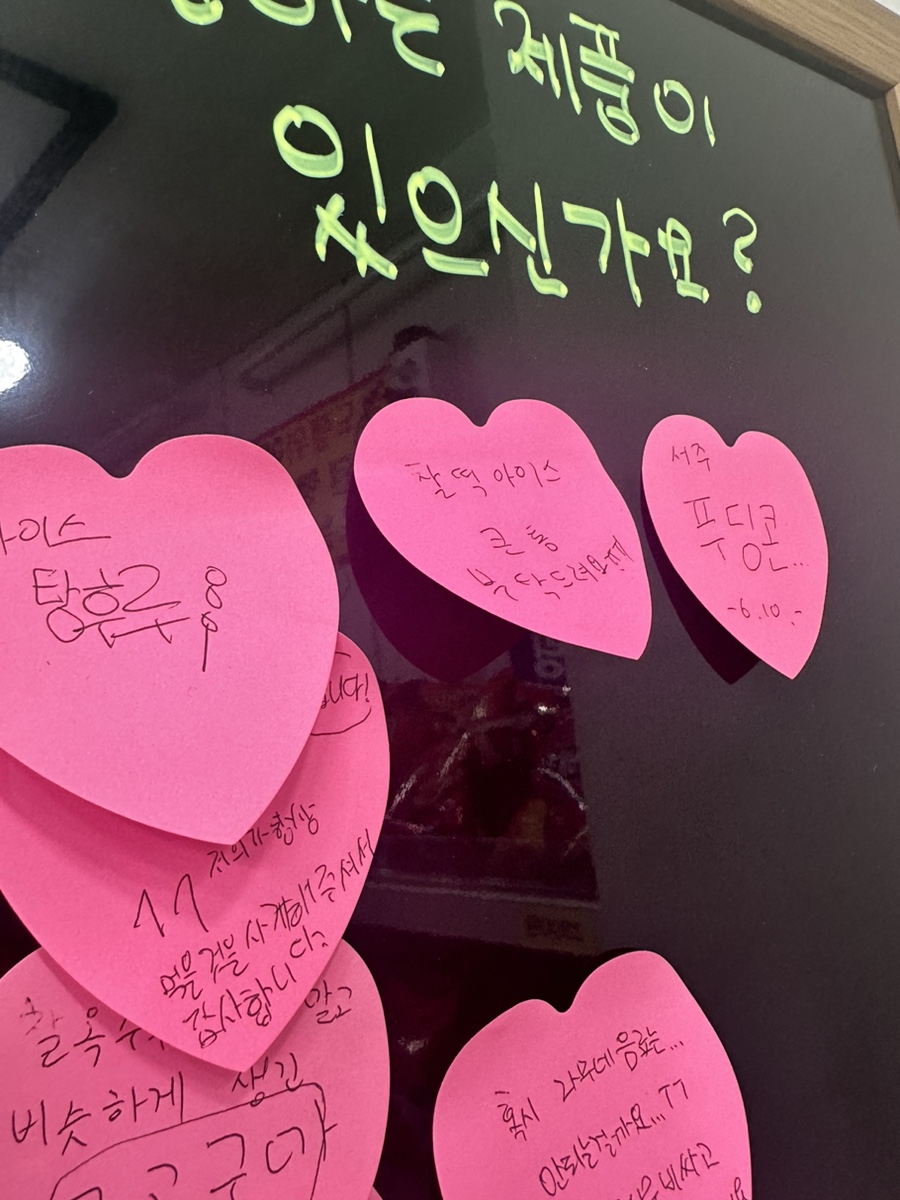 제품이
있으신가요?
찰떡 아이스
큰 통
부탁드려요!!
서주
푸딩콘...
-6.10.-
아이스
탕후루
저희가 항상
먹을 것을 사게 해주셔서
감사합니다
찰옥수수 말고
비슷하게 생긴
혹시 라무네 음료는...
안되는걸까요...ㅠㅠ
비싸고